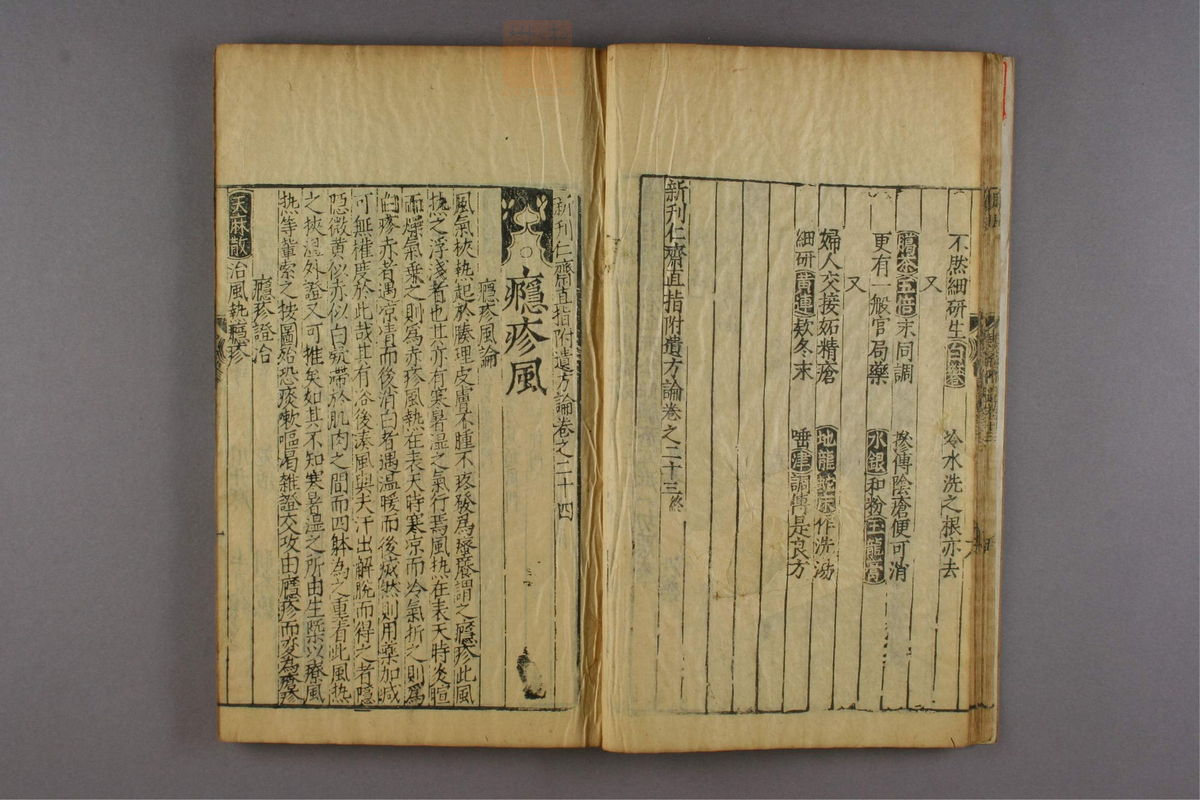 不然細研生白礬　冷水洗之根亦去
又
五倍末同調　摻傅陰瘡便可消
更有一般官局藥　水銀和粉玉龍膏
又
婦人交接妬精瘡　地龍蛇床作洗湯
細研黃連欵冬末　唾津調傅是良方
新刊仁齋直指附遺方論卷之二十三終
新刊仁齋直指附遺方論卷之二十四
癮疹風
癮疹風論
風氣挾熱起於腠理皮膚不腫不疼發為瘾謂之癮疹此風
熱之浮淺者也其亦有寒暑溫之氣行焉風熱在表天時炎暄
而燥氣乗之則為赤疹風熱在表天時寒凉而冷氣折之則為
白疹赤者遇凉清而後消白者遇溫暖而後滅然則用藥加減
可無權度於此哉其有浴後湊風與夫汗出解脫而得之者隱
隱微黄似赤似白凝滯於肌肉之間而四躰為之重着此風熱
之挾濕外證又可推矣如其不知寒暑濕之所由生槩以療風
熱等軰索之按圖殆恐痰嗽嘔曷雜證交攻由癮疹而变為癘疹
癮疹證治
天麻散　治風熱癮疹